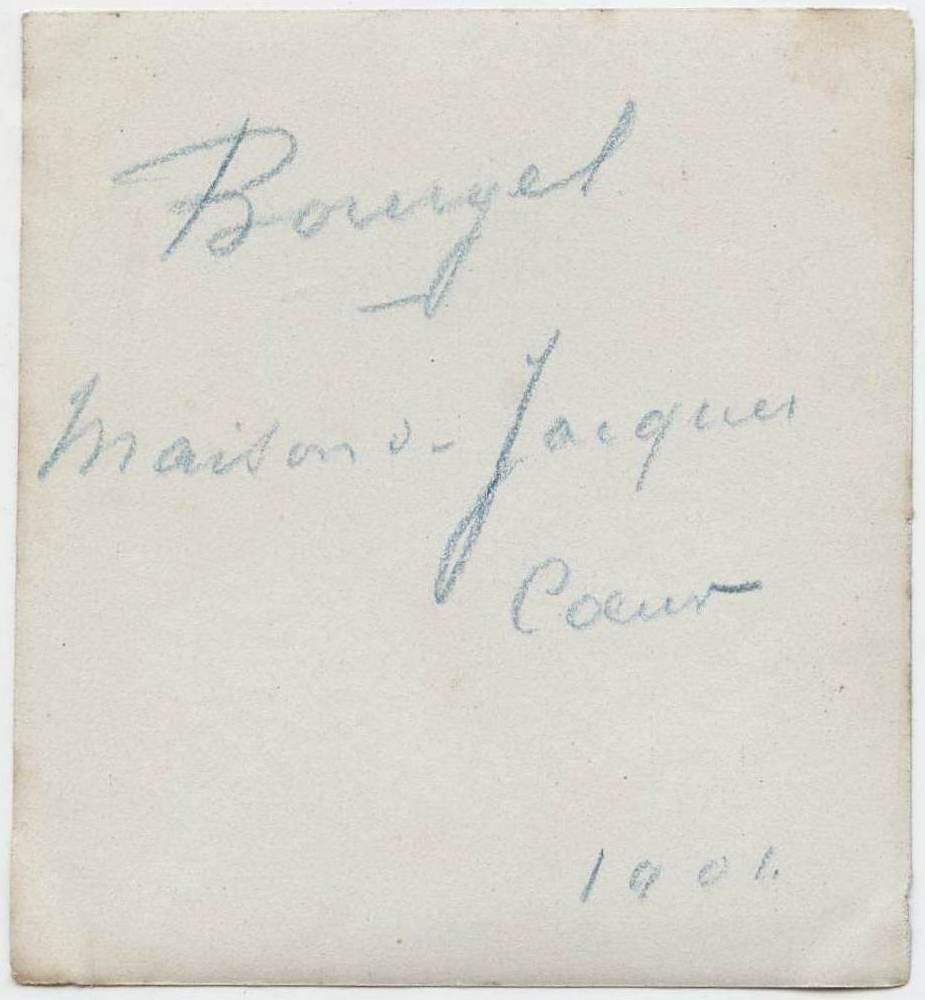 Bourges
Maison de Jacques
Cœur
1901